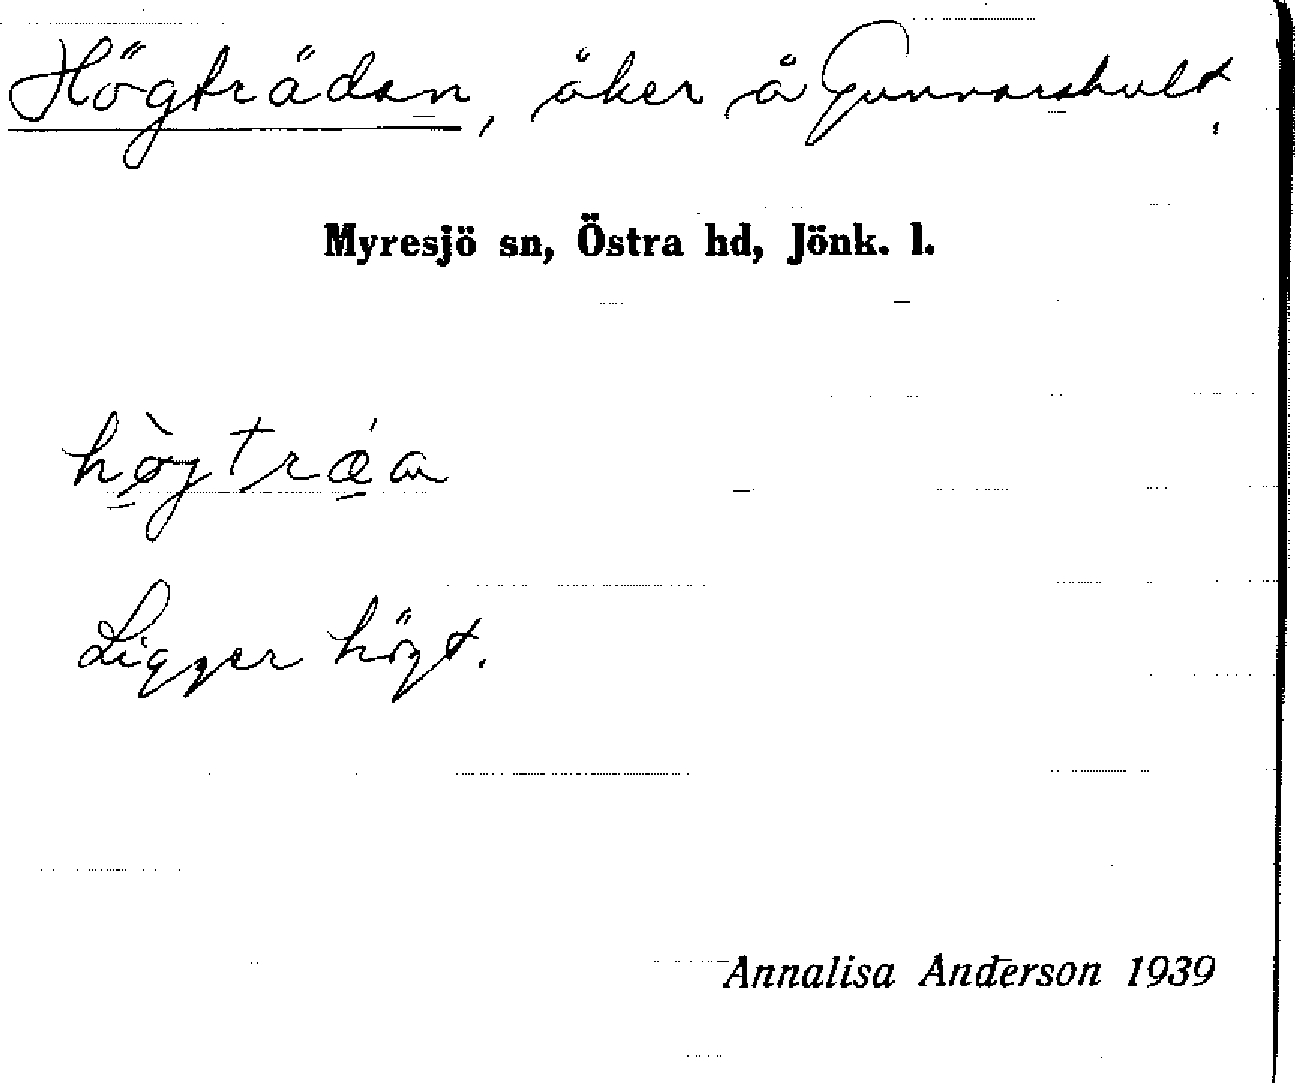 Högträdan, åker å Gunnarshult.
Myresjö sn, Östra hd, Jönk. l.
hø̀gtrǽa
Ligger högt.
Annalisa Anderson 1939